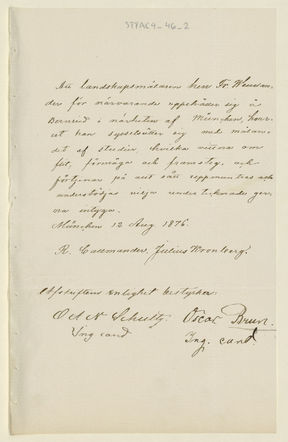 STFAC9-46_2
Att landskapsmålaren herr Fr. Ahlgrensson
der för närvarande uppehåller sig i
Bernried i närheten af München, hvar-
est han sysselsätter sig med målan-
det af studier hvilka vittna om
flit, förmåga och framsteg, och
förtjenar på allt sätt uppmuntras och
understödjas vilja undertecknade ger-
na intyga.
München 12 Aug 1876.
R. Callmander, Julius Kronberg.
Afskriftens enlighet bestyrka:
O A N Schultz Oscar Brun.
Ing cand Ing. cand.